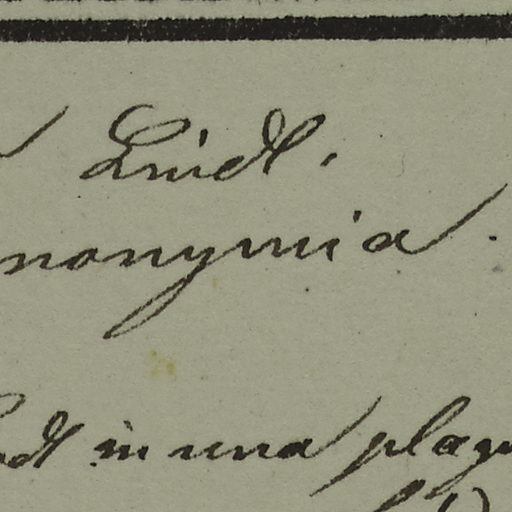 Lindt.
nonymia.
in una plag